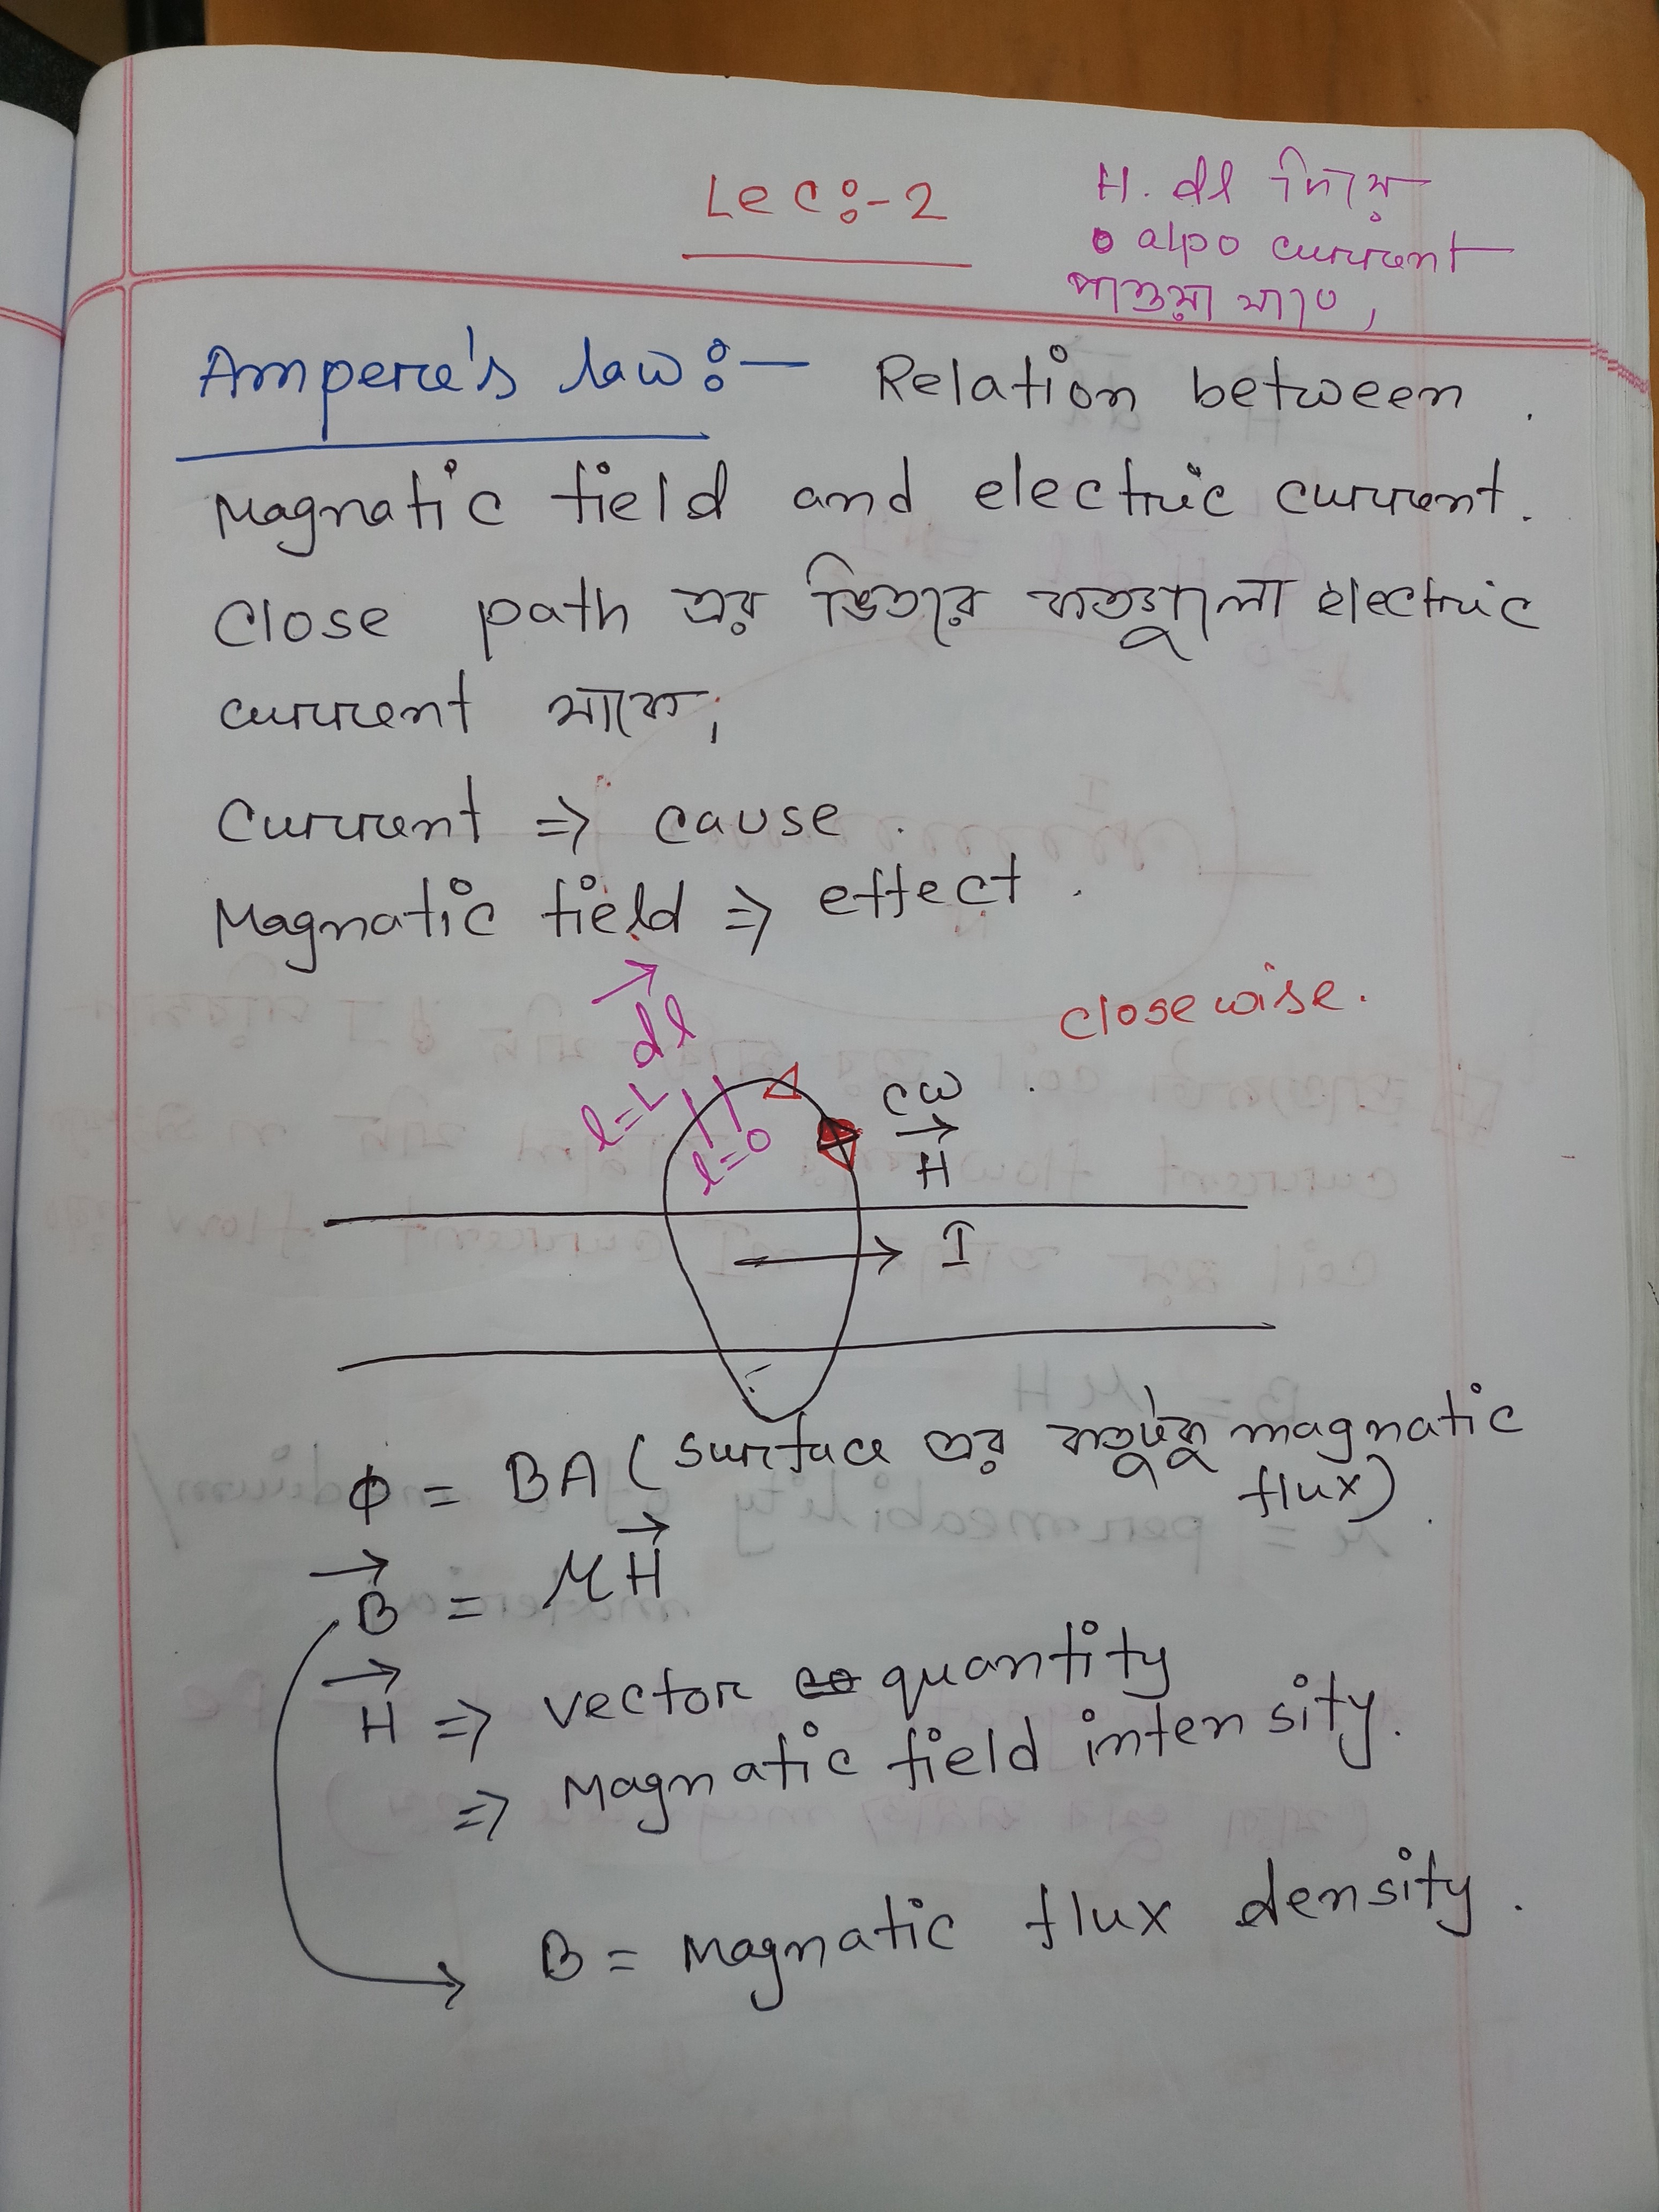 Lec:-2
H. dl দিয়ে
also current
পাওয়া যায়,
Ampere's law:— Relation between
Magnatic field and electric current.
Close path এর ভিতরে কতগুলো electric
current থাকে,
Current ⇒ cause.
Magnatic field ⇒ effect.
closewise.
dl
l=L
l=0
CW
H
I
Φ = BA (surface এর কতটুকু magnatic
flux)
B = μH
H ⇒ vector quantity
⇒ Magnatic field intensity.
B = Magnatic flux density.